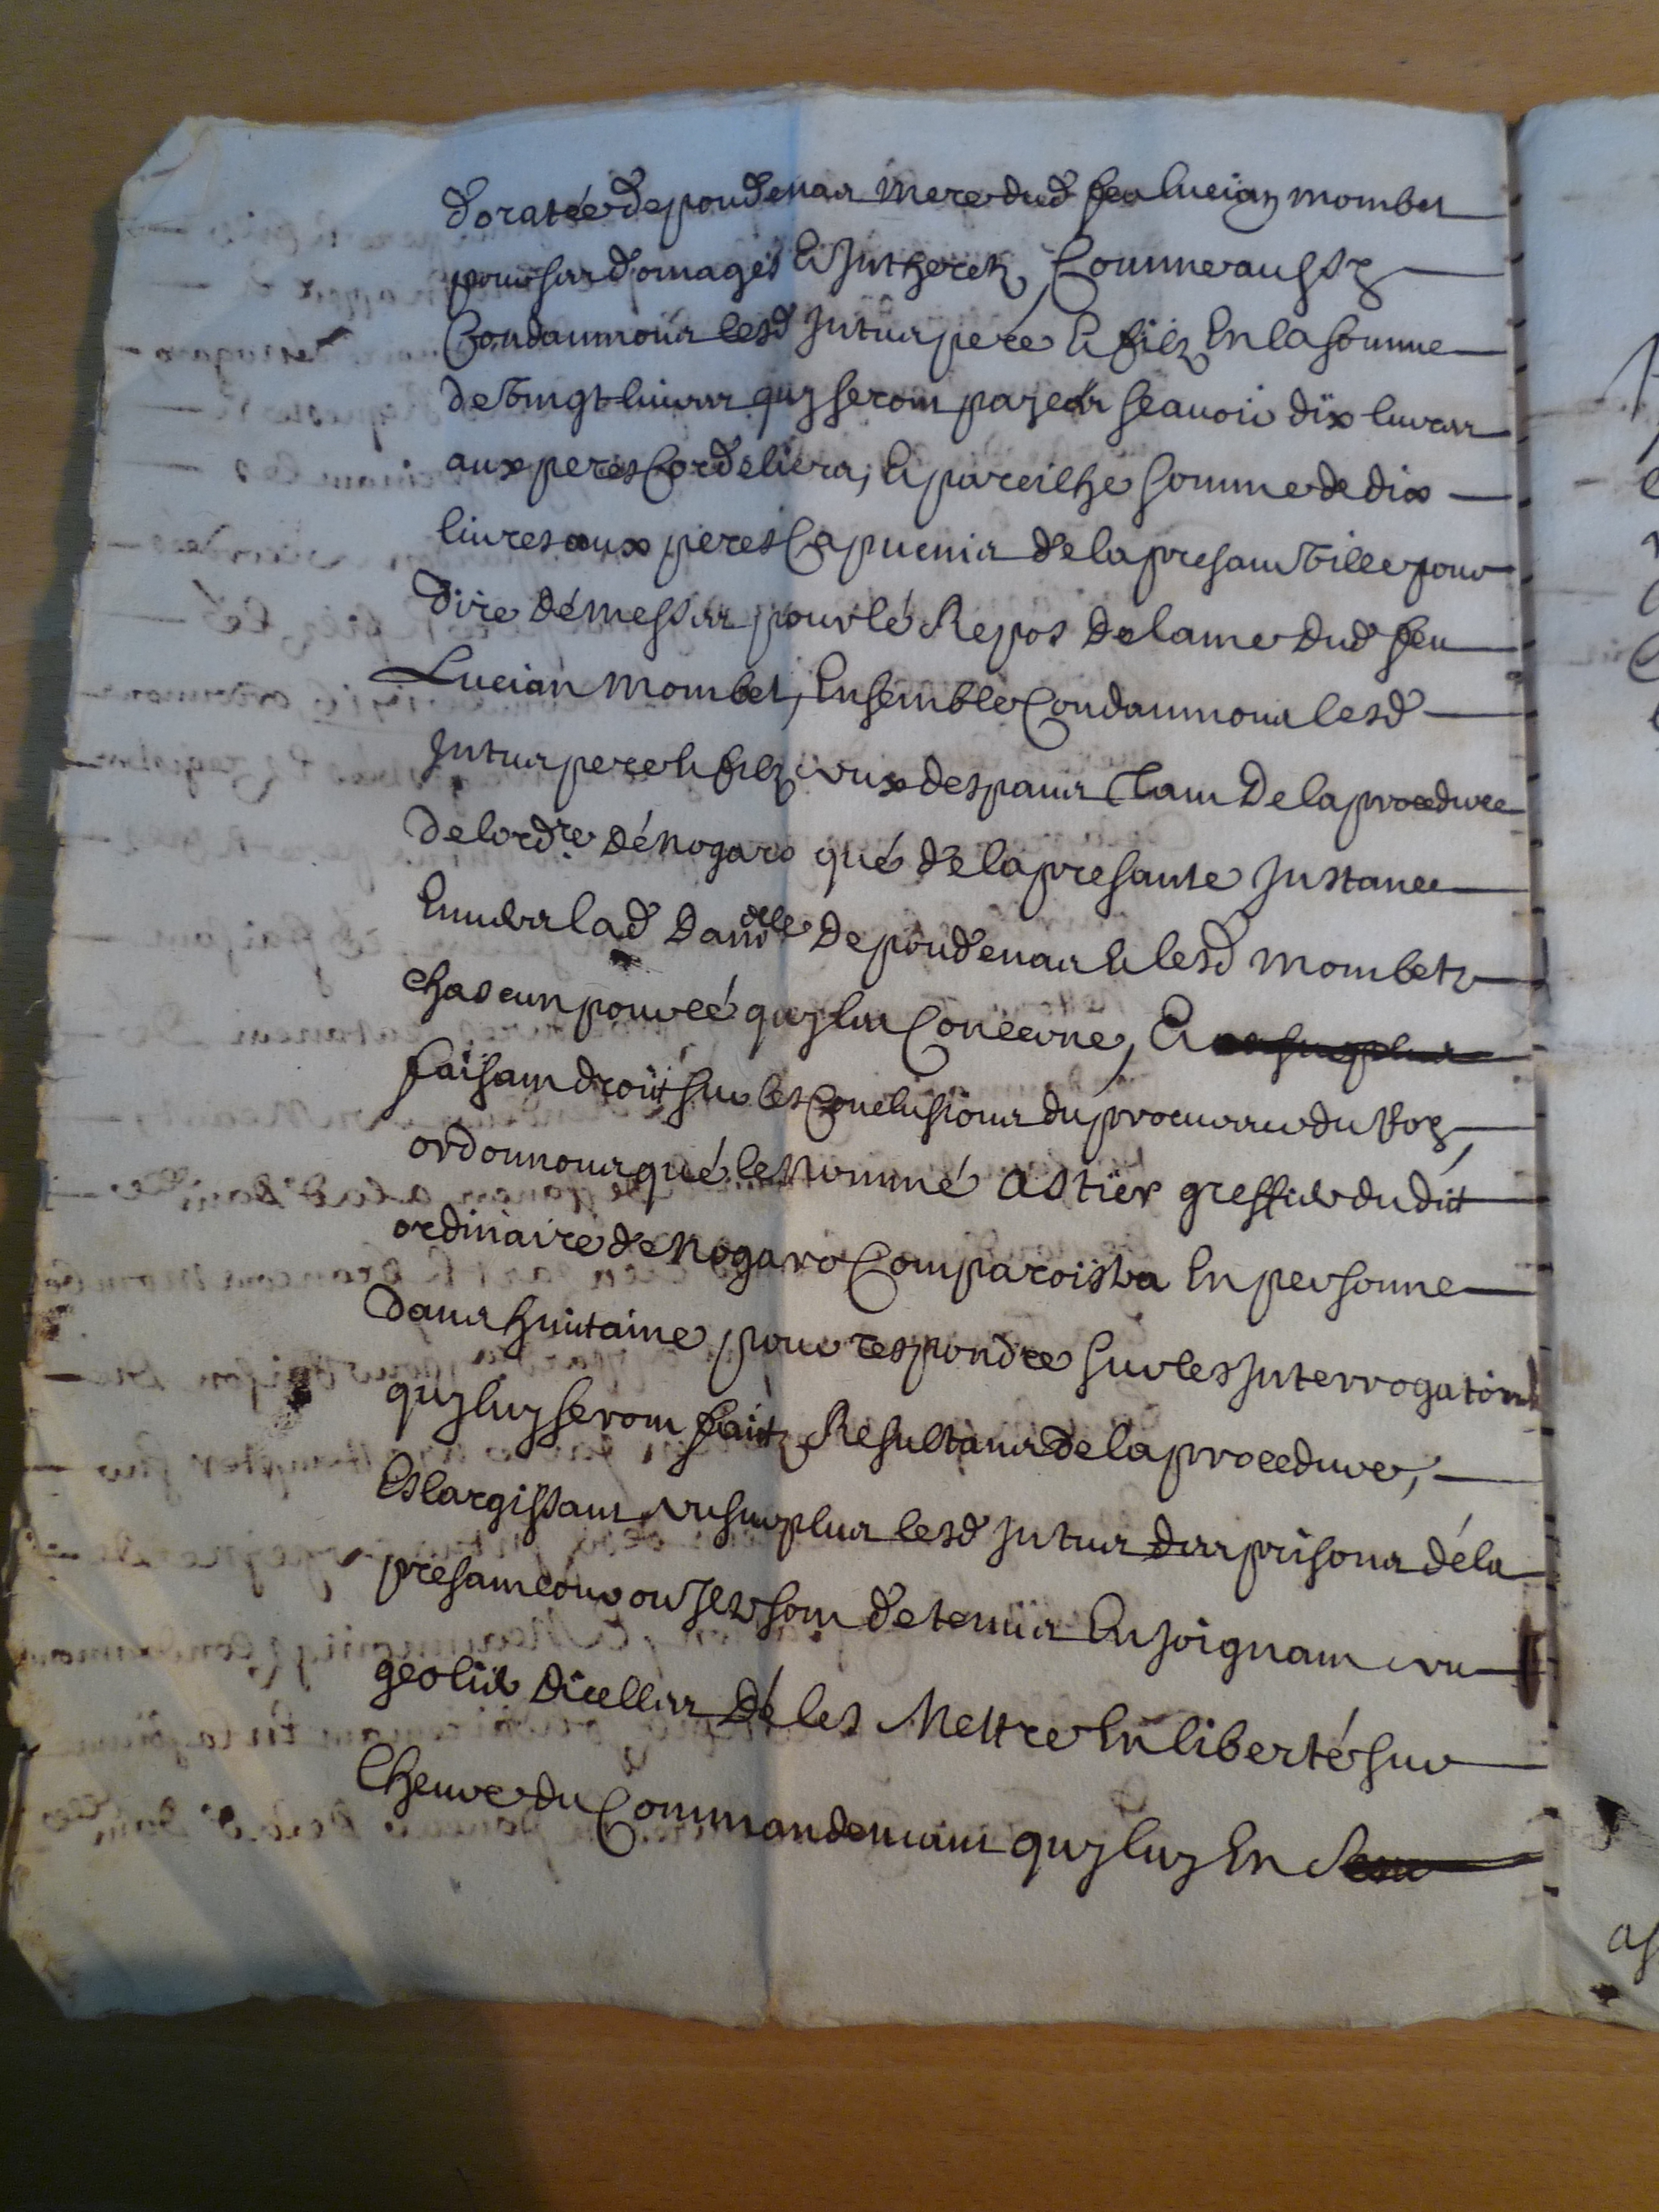 doratée de poudenas mere dud feu lucian mombet
pour ses domages et Intheretz, Comme aussy
Condamnons lesd Intus pere et filz En la somme
de vingt livres quy seront payées scavoir dix livres
aux peres Cordeliers, et pareilhe somme de dix
livres aux peres Capucins de la presant ville pour
dire dé messes pour lé Repos de lame dud feu
Lucian mombet, Ensemble Condamnons lesd
Intus pere et filz aux despans Tant De la procedure
de lordre dé nogaro qué de la presante Instance
Envers lad damlle de poudenas et lesd mombetz
chascun pour cé quy les Concerne, Et
faisant droit sur les Conclusions du procureur du Roy,
ordonnons qué le nommé astier greffier du dit
ordinaire de nogaro Comparoistra En personne
dans huitaine pour respondre sur les Interrogatoires
quy luy seront faitz Resultans de la procedure,
Eslargissant au surplus lesd Intus des prisons dé la
presant cour ou Ilz sont detenus Enjoignant au
geolier dicelles dé les Mettre En liberté sur
lheure du Commandemant quy luy En sera